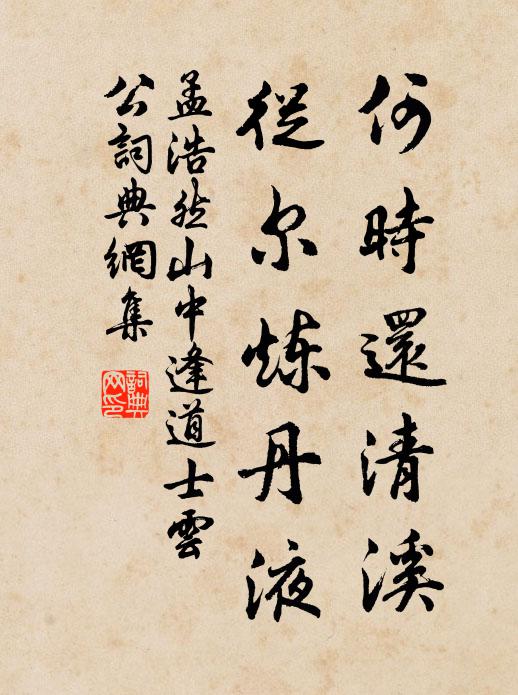 何時還清溪
從尔炼丹液
孟浩然山中逢道士雲
公詞典網集
詞典
网印